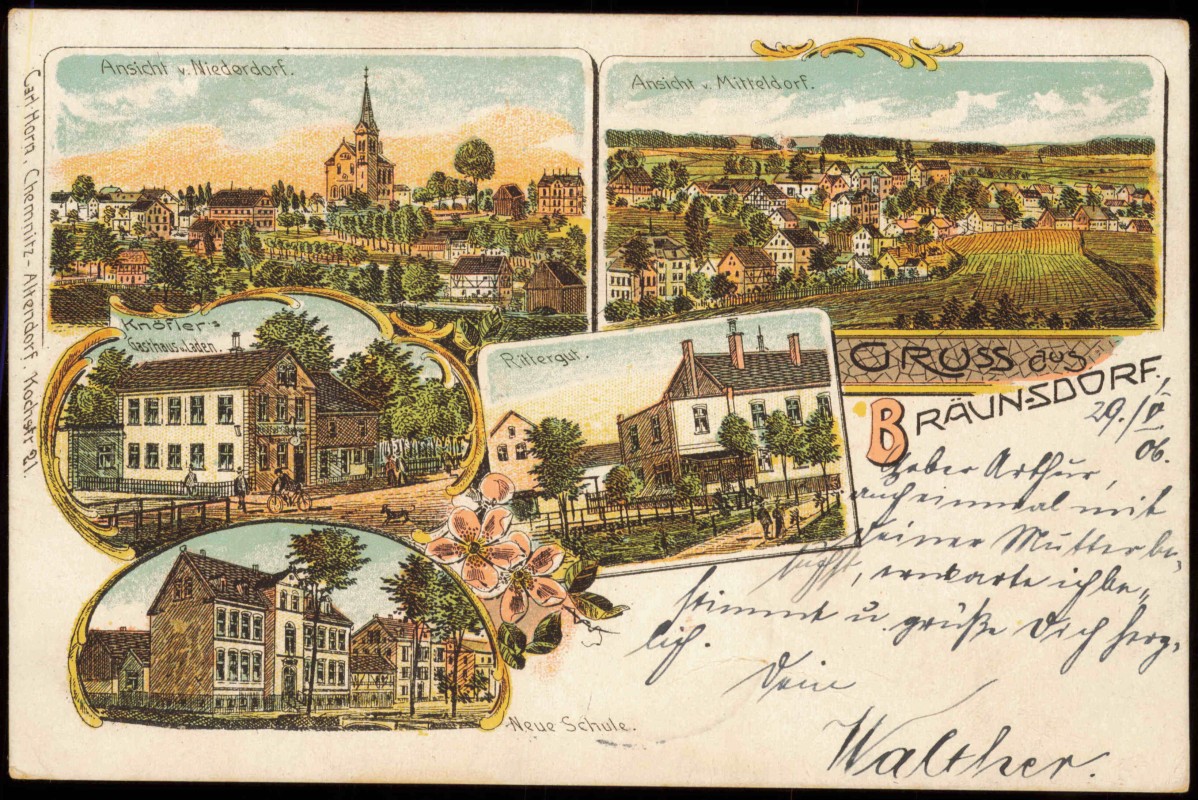 Ansicht v. Niederdorf.
Ansicht v. Mitteldorf.
Carl Horn, Chemnitz-Altendorf, Kochstr. 21.
Knöfler's
Gasthaus u. Laden.
Rittergut.
GRUSS aus
BRÄUNSDORF.
29./V
06.
Lieber Arthur,
auch einmal mit
Deiner Mutter be-
sucht, erwarte ich be-
stimmt u. grüße Dich herz-
lich.
Dein
Walther.
Neue Schule.